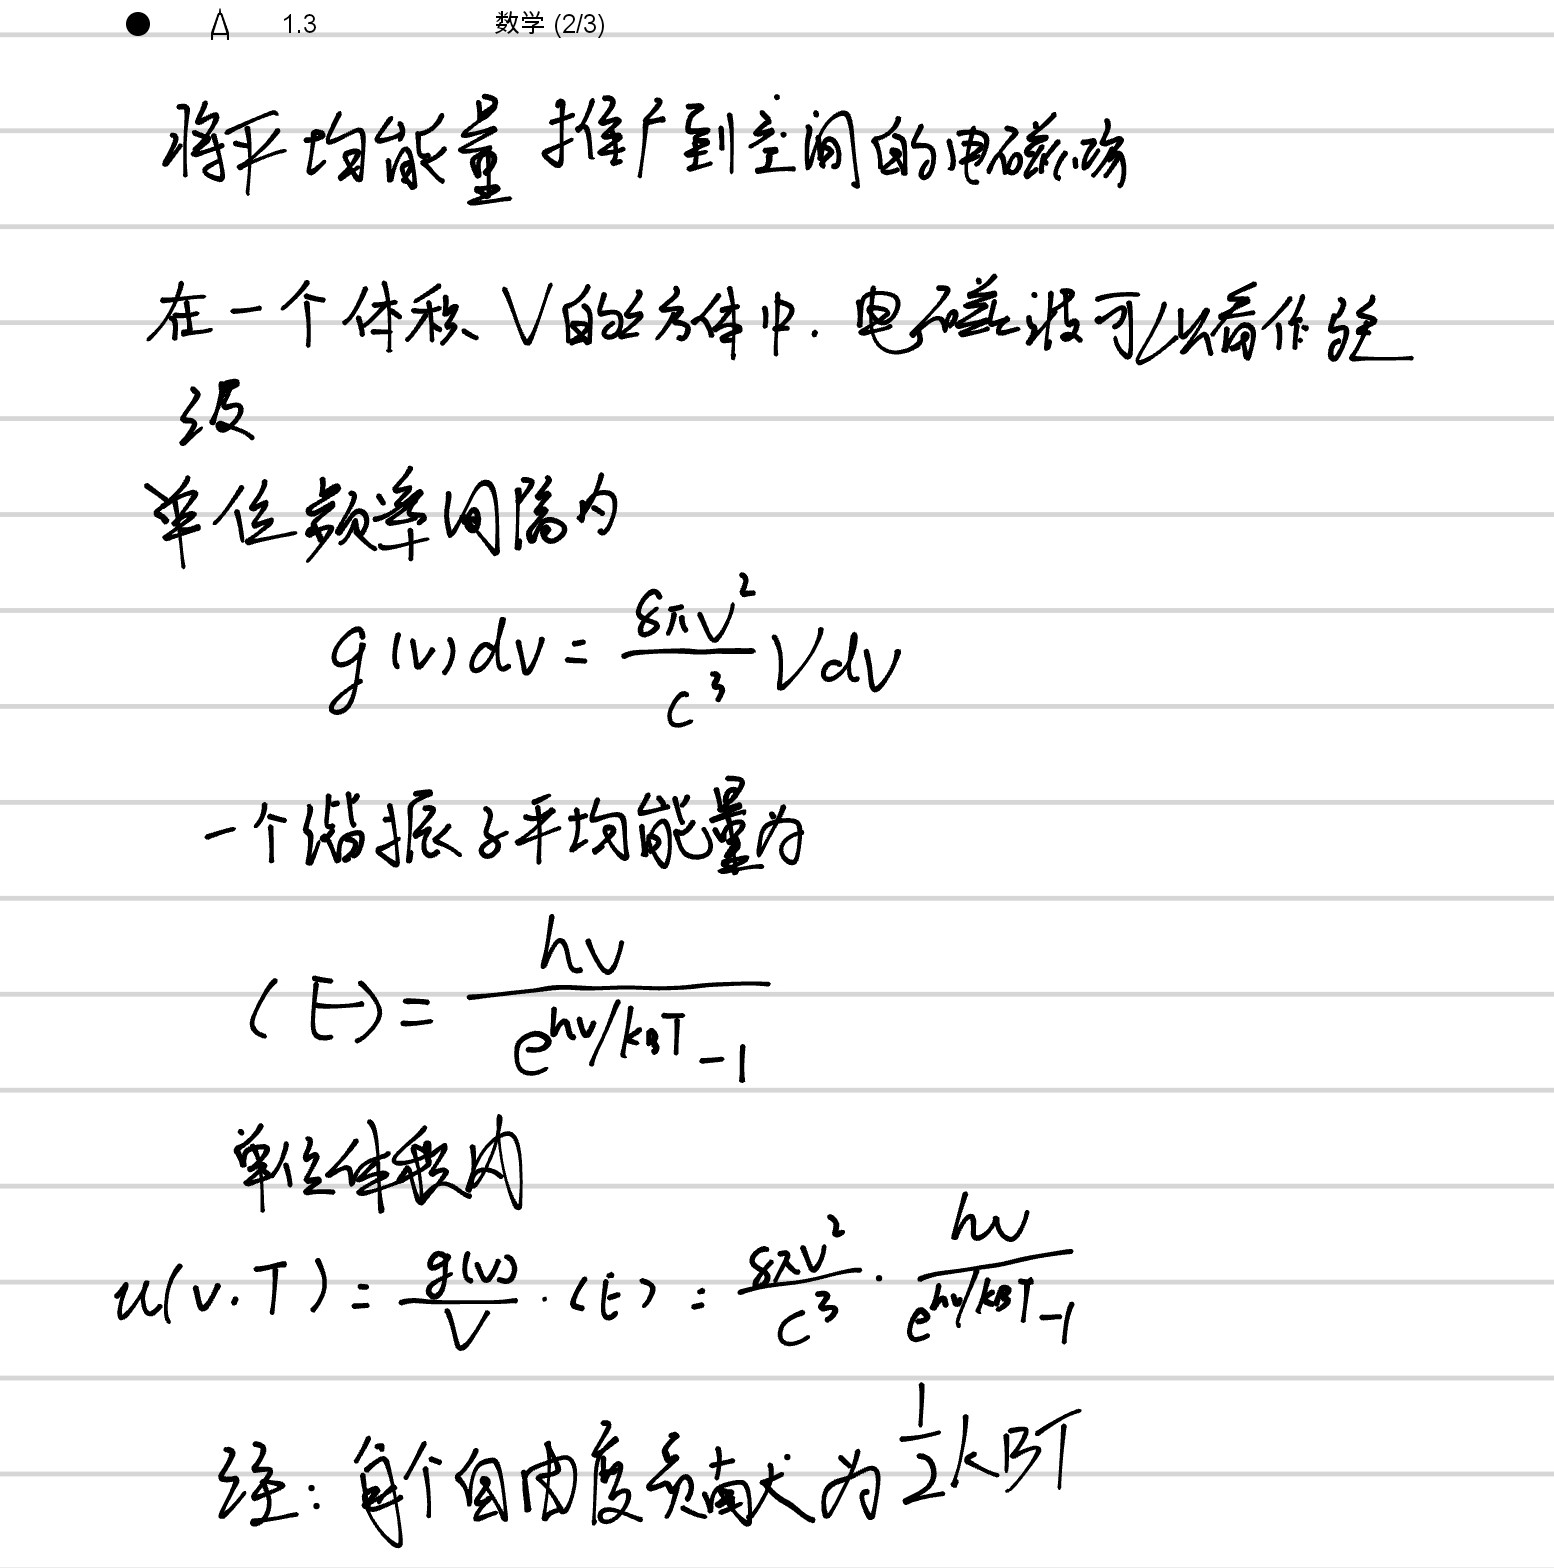 ● A 1.3 数学 (2/3)
将平均能量 推广到空间的电磁场
在一个体积 V 的立方体中. 电磁波可以看作驻
波
单位频率间隔内
g(ν)dν = \frac{8πν^2}{c^3} V dν
一个谐振子平均能量为
⟨E⟩ = \frac{hν}{e^{hν/k_BT} - 1}
单位体积内
u(ν.T) = \frac{g(ν)}{V} · ⟨E⟩ = \frac{8πν^2}{c^3} · \frac{hν}{e^{hν/k_BT} - 1}
注: 每个自由度贡献为 \frac{1}{2} kBT